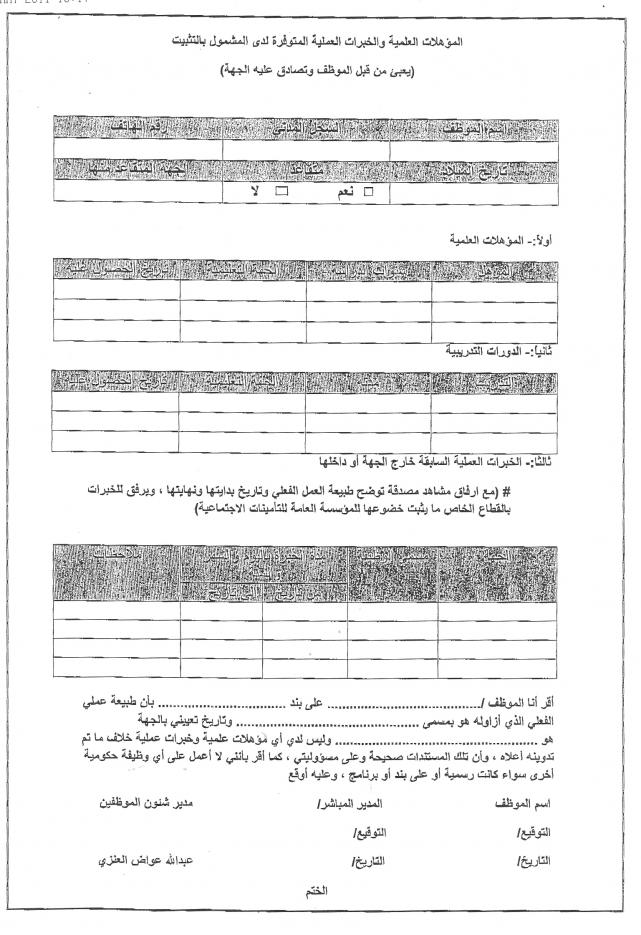 المؤهلات العلمية والخبرات العملية المتوفرة لدى المشمول بالتثبيت
(يعبئ من قبل الموظف وتصادق عليه الجهة)
اسم الموظف السجل المدني رقم الهاتف
تاريخ الميلاد متقاعد الجهة المتقاعد منها
□ نعم □ لا
أولاً:- المؤهلات العلمية
المؤهل الجهة التعليمية تاريخ الحصول عليه
ثانياً:- الدورات التدريبية
الجهة التعليمية تاريخ الحصول عليه
ثالثا:- الخبرات العملية السابقة خارج الجهة أو داخلها
# (مع ارفاق مشاهد مصدقة توضح طبيعة العمل الفعلي وتاريخ بدايتها ونهايتها ، ويرفق للخبرات
بالقطاع الخاص ما يثبت خضوعها للمؤسسة العامة للتأمينات الاجتماعية)
الجهة مدة الخبرة باليوم والشهر ملاحظات
من تاريخ إلى تاريخ
أقر أنا الموظف /........................................ على بند ............................ بأن طبيعة عملي
الفعلي الذي أزاوله هو بمسمى ........................................ وتاريخ تعييني بالجهة
هو ........................................ وليس لدي أي مؤهلات علمية وخبرات عملية خلاف ما تم
تدوينه أعلاه ، وأن تلك المستندات صحيحة وعلى مسؤوليتي ، كما أقر بأنني لا أعمل على أي وظيفة حكومية
أخرى سواء كانت رسمية أو على بند أو برنامج ، وعليه أوقع
اسم الموظف المدير المباشر/ مدير شئون الموظفين
التوقيع/ التوقيع/
التاريخ/ التاريخ/ عبدالله عواض العنزي
الختم